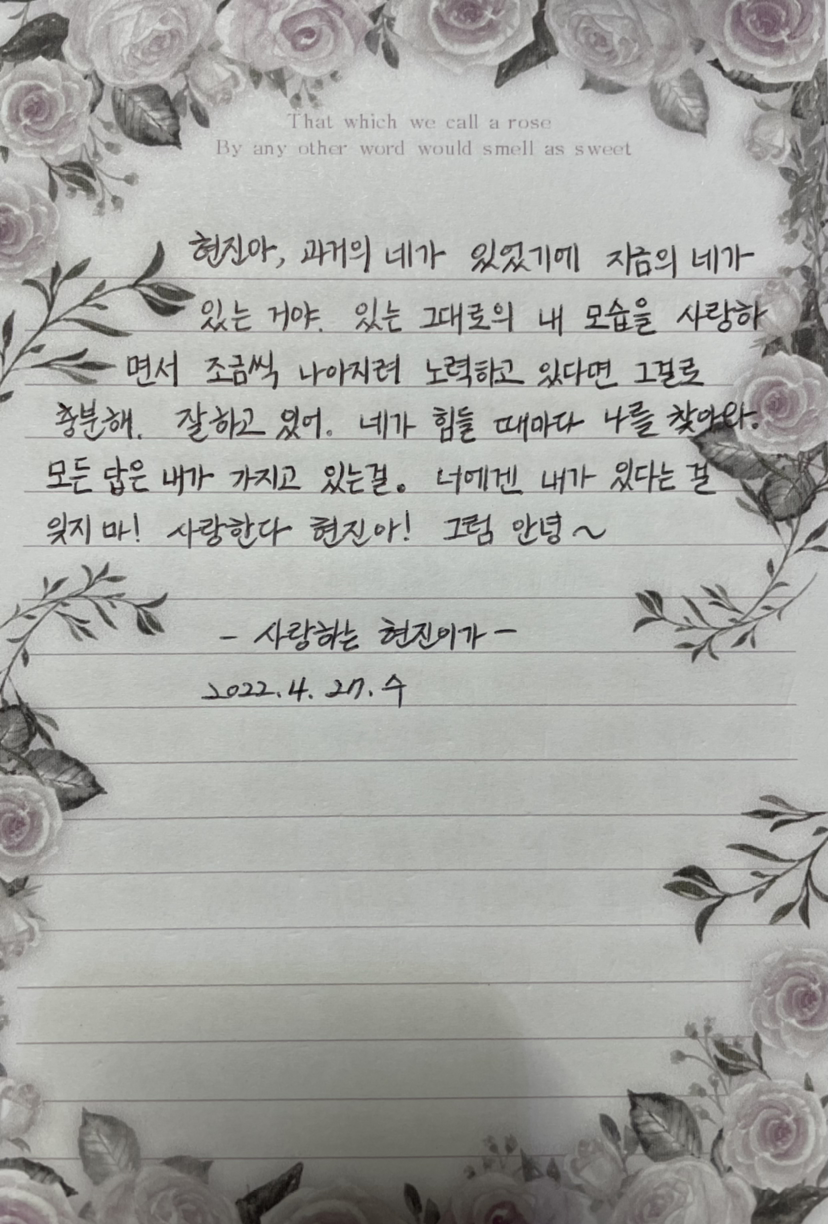 That which we call a rose
By any other word would smell as sweet
현진아, 과거의 네가 있었기에 지금의 네가
있는 거야. 있는 그대로의 내 모습을 사랑하
면서 조금씩 나아지려 노력하고 있다면 그걸로
충분해. 잘하고 있어. 네가 힘들 때마다 나를 찾아와.
모든 답은 내가 가지고 있는걸. 너에겐 내가 있다는 걸
잊지 마! 사랑한다 현진아! 그럼 안녕~
- 사랑하는 현진이가 -
2022. 4. 27. 수